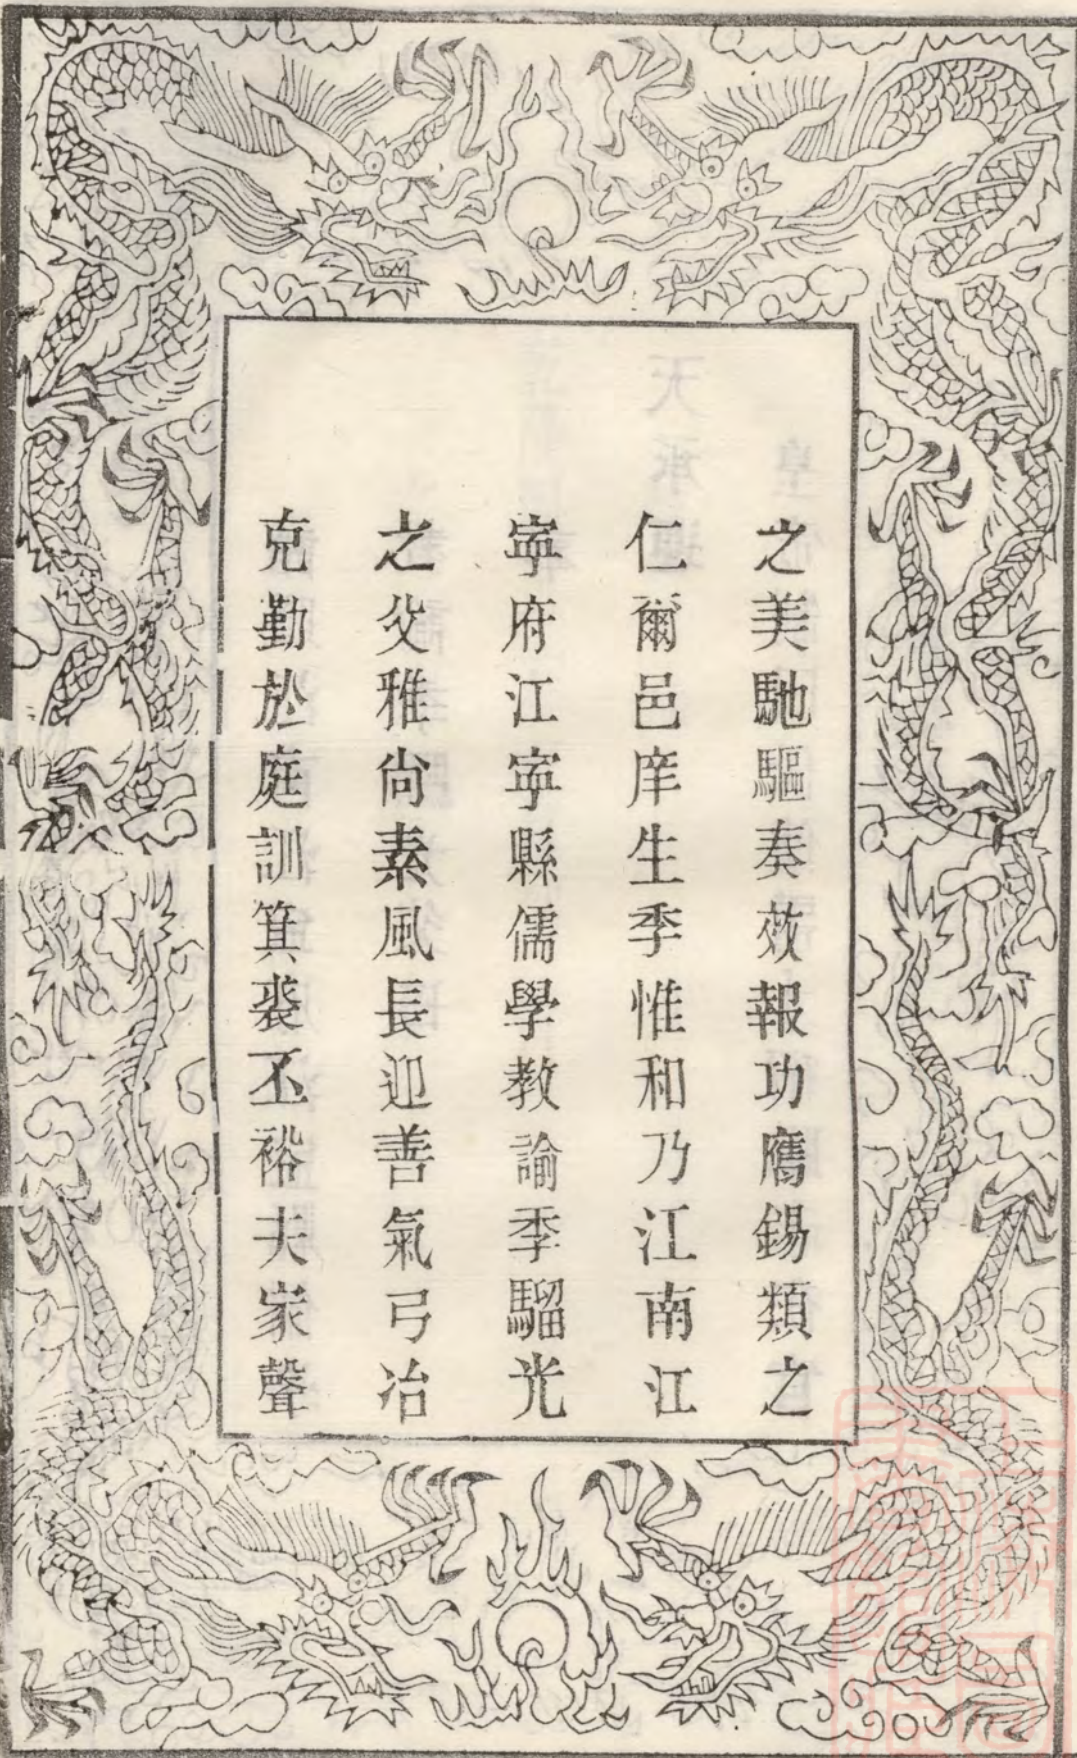 之美馳驅奏效報功膺錫類之
仁爾邑庠生季惟和乃江南江
寕府江寕縣儒學教諭季騮光
之父雅尙素風長迎善氣弓冶
克勤於庭訓箕裘丕裕夫家聲